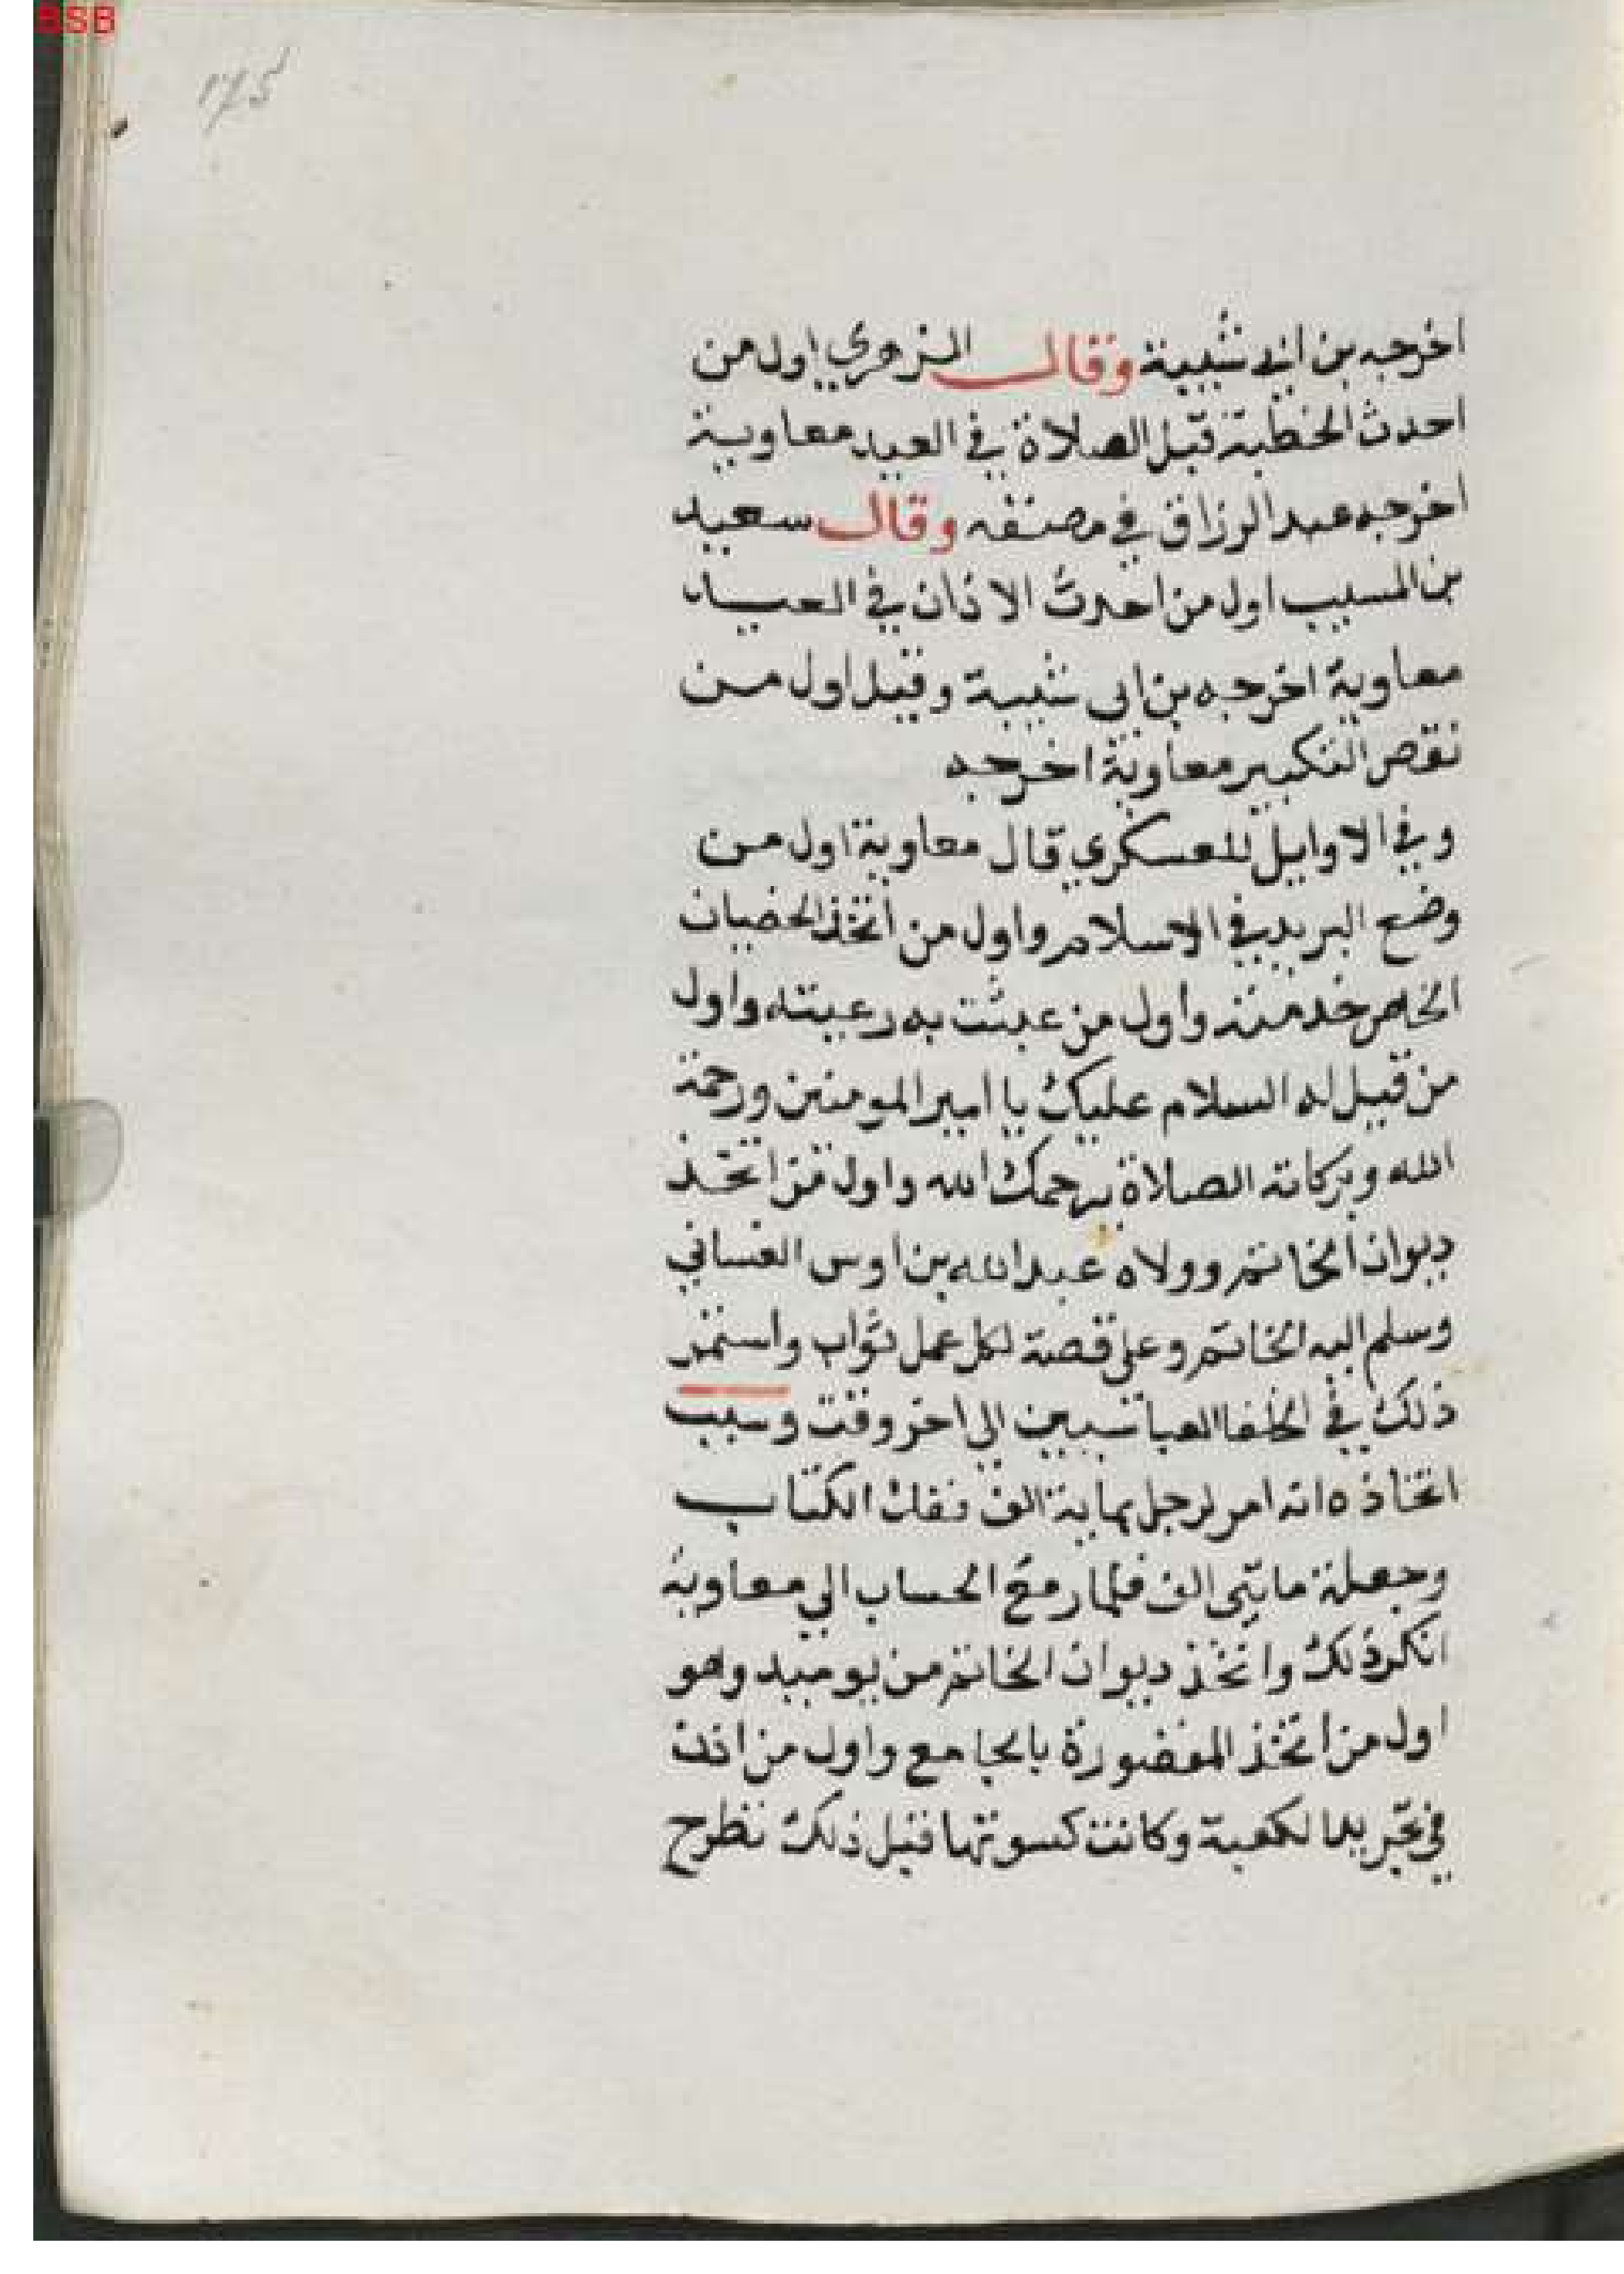 BSB
175
اخرجه بن ابي شيبة وقال الزهري اول من
احدث الخطبة قبل الصلاة في العيد معاوية
اخرجه عبد الرزاق في مصنفه وقال سعيد
بن المسيب اول من احدث الاذان في العيد
معاوية اخرجه بن ابي شيبة وقيل اول من
نقص التكبير معاوية اخرجه
وفي الاوايل للعسكري قال معاوية اول من
وضع البريد في الاسلام واول من اتخذ الخصيان
الخاص خدمته واول من عبثت به رعيته واول
من قيل له السلام عليك يا امير المومنين ورحمة
الله وبركاته الصلاة يرحمك الله واول من اتخذ
ديوان الخاتم وولاه عبد الله بن اوس الغساني
وسلم اليه الخاتم وعلى قصة لكل عمل ثواب واستمر
ذلك في الخلفا العباسيين الى اخر وقت وسبب
اتخاذه انه امر لرجل بماية الف ففك الكتاب
وجعله مايتى الف فلما رفع الحساب الي معاوية
انكر ذلك واتخذ ديوان الخاتم من يوميد وهو
اول من اتخذ المقصورة بالجامع واول من اذن
في تجريد الكعبة وكانت كسوتها قبل ذلك تطرح